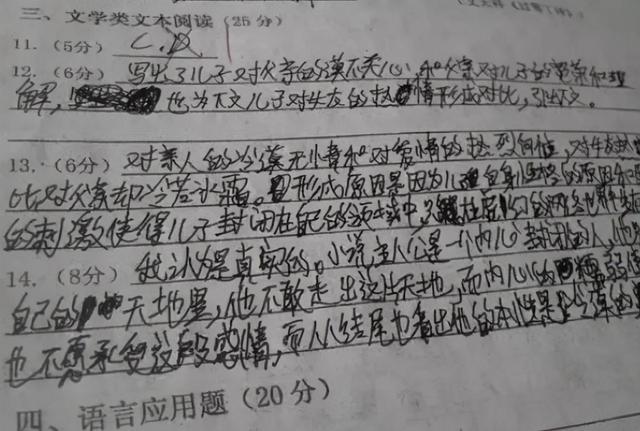 三、文学类文本阅读（25分）
11.（5分）C.D
12.（6分）写出了儿子对父亲的漠不关心，和父亲对儿子的宽容和理
解，也为下文儿子对失友的热情形成对比，引出下文。
13.（6分）对亲人的冷漠无情和对爱情的热烈向往，对失友
比对父亲却冷若冰霜。形成原因是因为儿子自身性格的原因和
的刺激使得儿子封闭在自己的领域中，
14.（8分）我认为是真实的。小说主人公是一个内心封闭的人，他
自己的天地里，他不敢走出这片天地，而内心的
也不愿承受这段感情，而从结尾也看出他的本性是冷漠的
四、语言应用题（20分）